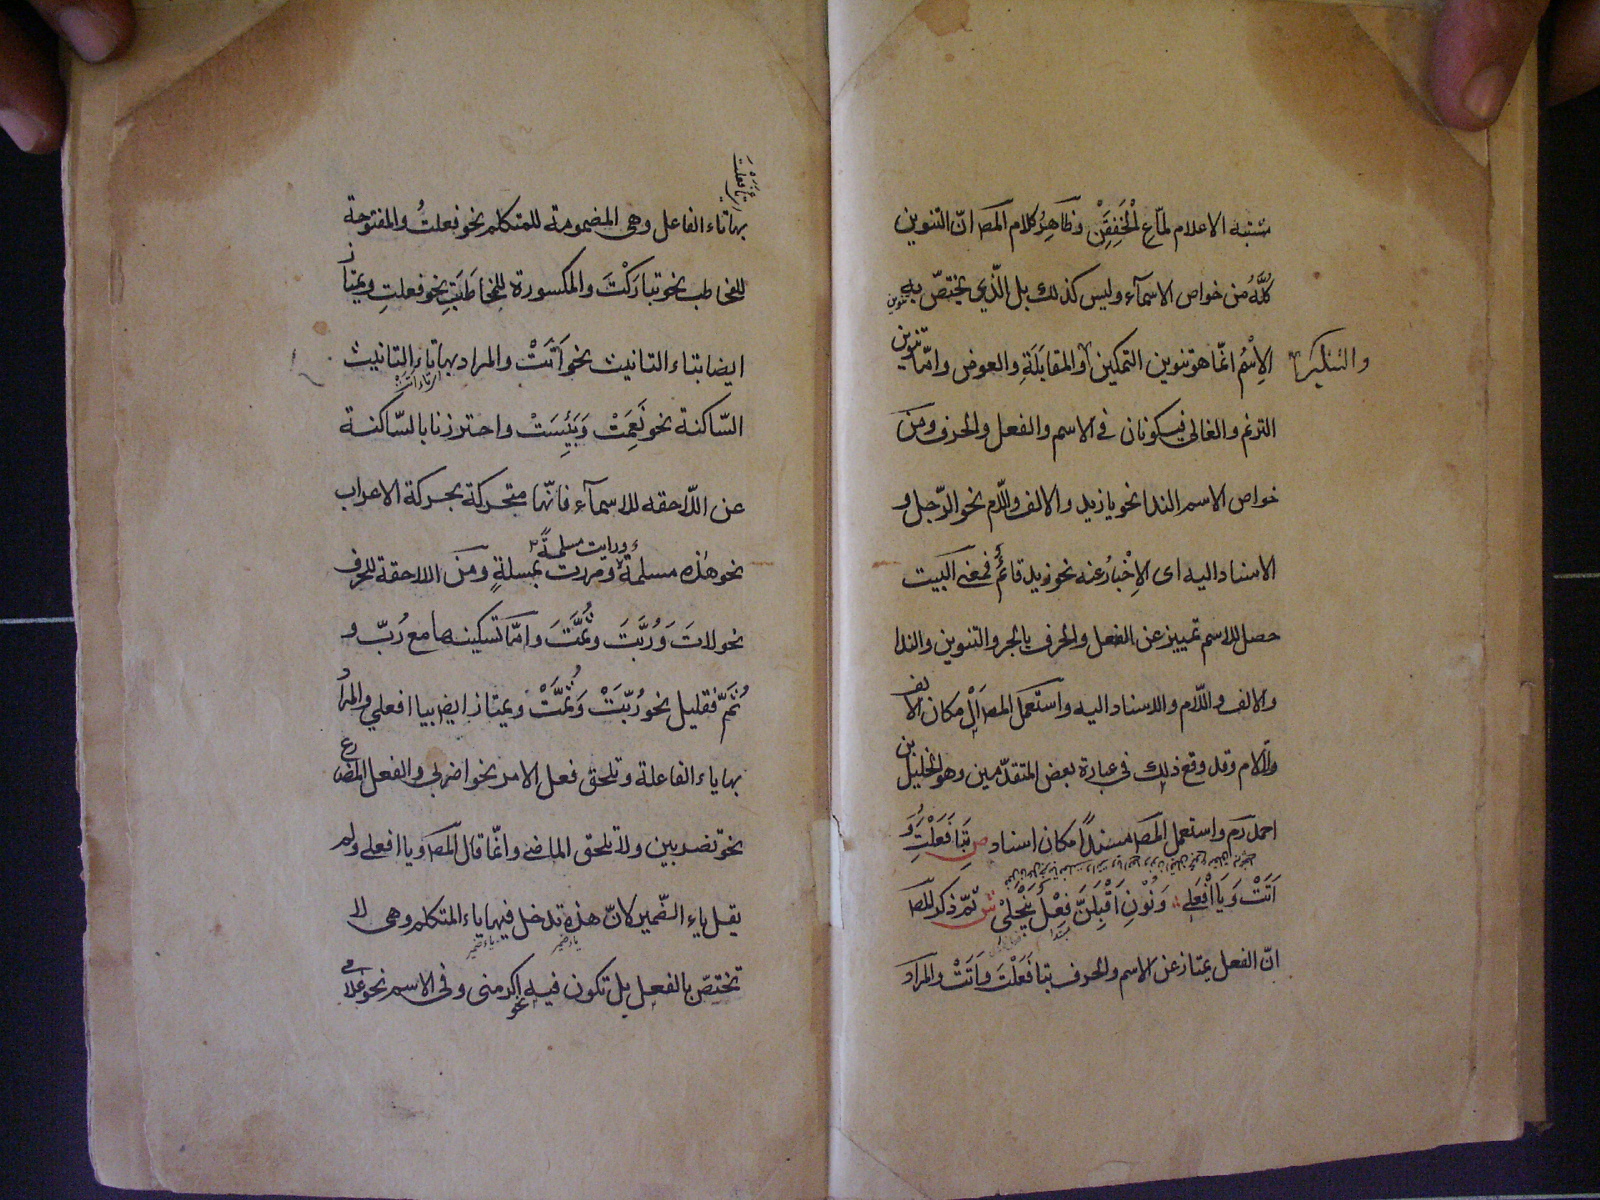 مشتبه الاعلام لمّاع الْخَفَقِنْ وظَاهِرُ كلام المص انّ التنوين
كُلَّهُ من خواص الاسمآء وليس كذلك بل الّذي يختصّ به
الاِسْمُ انّما هو تنوين التمكين والمقابَلَةِ والعوض وامّا تنوين
والتنكير
الترنم والغالى فيكونان فى الاسم والفعل والحرف ومن
خواص الاسم الندا نحو يا زيد والالف واللّام نحو الرّجل و
الاسناد اليه اى الاِخْبارُ عنه نحو زيد قائمٌ فمعنى البيت
حصل للاسم تمييز عن الفعل والحرف بالجر والتنوين والندا
والالف واللّام والاسناد اليه واستعمل المص اَلْ مكان الالف
واللام وقد وقع ذلك فى عبارة بعض المتقدّمين وهو الخليل بن
احمد رح واستعمل المص مسنداً مكان اسناد ص بِتَا فَعَلْتَ وَ
اَتَتْ وَيَا افْعَلِي وَنُوْنِ اَقْبِلَنَّ فِعْلٌ يَنْجَلِيْ ش ثمّ ذكر المص
انّ الفعل يمتاز عن الاسم والحرف بتا فَعَلْتَ وَاَتَتْ والمراد
بها تاء الفاعل وهى المضمومة للمتكلم نحو فعلتُ والمفتوحة
للمخاطب نحو تباركْتَ والمكسورة للمخاطَبَةِ نحو فعلتِ ويمتاز
ايضا بتاء التانيث نحو اَتَتْ والمراد بها تاء التانيث
السّاكنة نحو نَعِمَتْ وَبَئِسَتْ واحترزنا بالسّاكنة
عن اللّاحقه للاسمآء فانّها متحركة بحركة الاعراب
نحو هٰذه مسلمة ورايت مسلمةً ومررت بمسلةٍ ومن اللاحقة للحرف
نحو لاتَ وَرُبَّتَ وثُمَّتَ وامّا تسكينها مع رُبّ و
ثُمَّ فقليل نحو رُبّتْ وَثُمَّتْ ويمتاز ايضا بيا افعلي والمراد
بها ياء الفاعلة وتلحق فعل الامر نحو اضربى والفعل المضارع
نحو تضربين ولا تلحق الماضى وانّما قال المص ويا افعلى ولم
يقل ياء الضّمير لانّ هذه تدخل فيها ياء المتكلم وهى لا
تختصّ بالفعل بل تكون فيه نحو اكرمنى وفى الاسم نحو غلامى